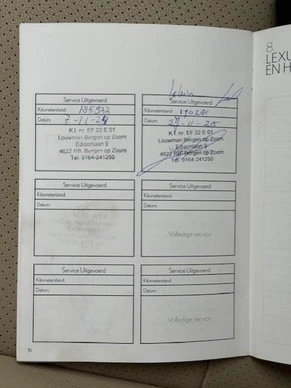 Service Uitgevoerd
Kilometerstand
Datum 7-11-24
K.f. nr. EF 22 E 01
Louwman Bergen op Zoom
Edisonlaan 9
Tel. 0164-241250
Service Uitgevoerd
Kilometerstand
Datum
K.f. nr. EF 22 E 01
Louwman Bergen op Zoom
Edisonlaan 9
Tel. 0164-241250
Service Uitgevoerd
Kilometerstand
Datum
Service Uitgevoerd
Kilometerstand
Datum
Volledige service
Service Uitgevoerd
Kilometerstand
Datum
Service Uitgevoerd
Kilometerstand
Datum
Volledige service
8.
LEXU
EN H